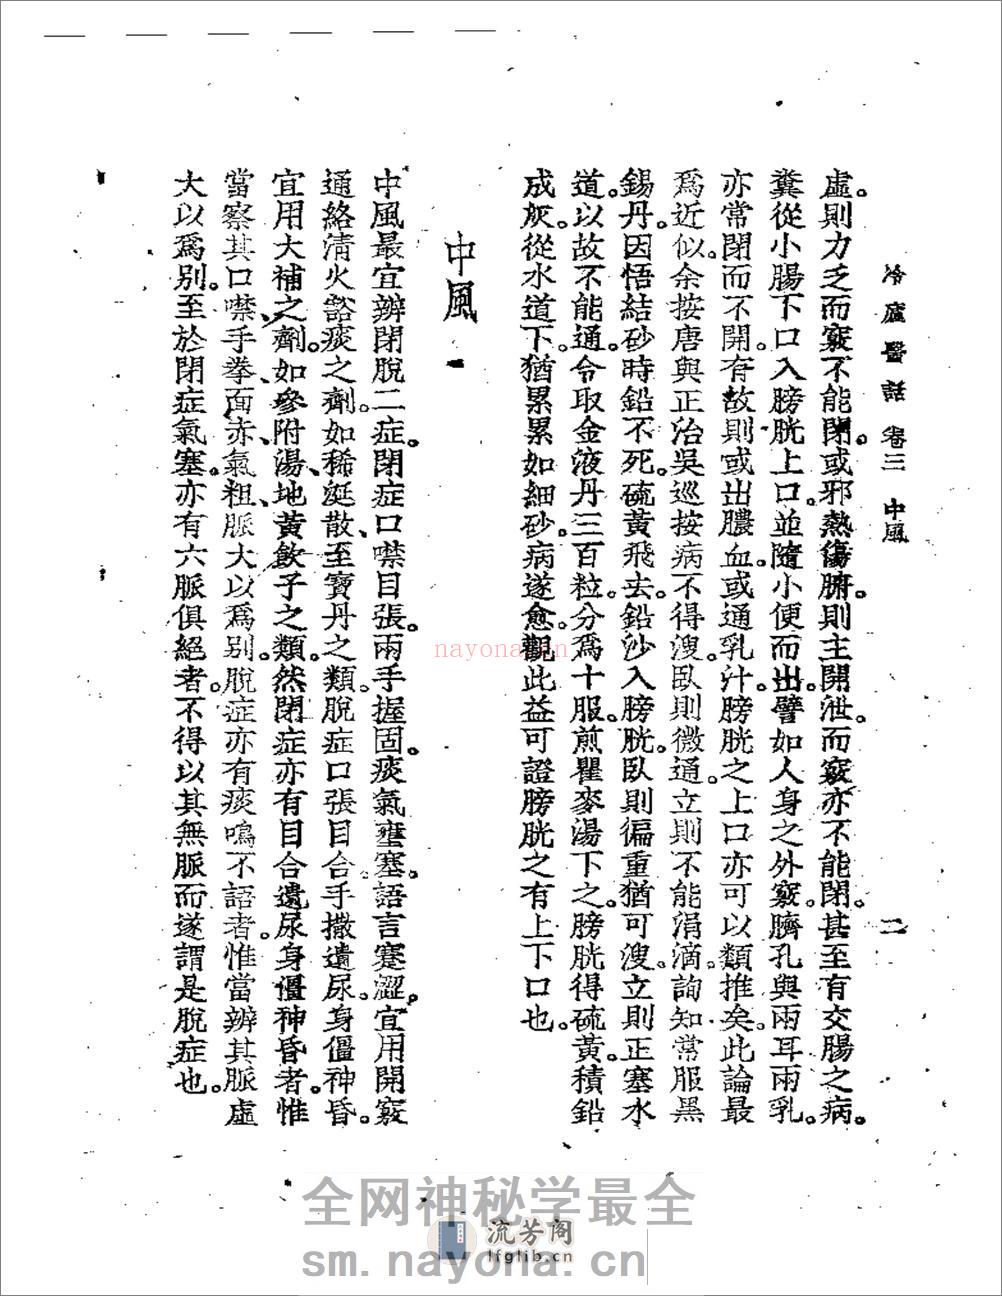 冷廬醫話 卷三 中風 二
虛。則力乏而竅不能閉。或邪熱傷腑。則主開泄。而竅亦不能閉。甚至有交腸之病。
糞從小腸下口入膀胱上口。並隨小便而出。譬如人身之外竅。臍孔與兩耳兩乳。
亦常閉而不開。有故則或出膿血。或通乳汁。膀胱之上口亦可以類推矣。此論最
爲近似。余按唐與正治吳巡按病不得溲。臥則微通。立則不能涓滴。詢知常服黑
錫丹。因悟結砂時鉛不死。硫黃飛去。鉛沙入膀胱。臥則偏重。猶可溲。立則正塞水
道。以故不能通。令取金液丹三百粒。分爲十服。煎瞿麥湯下之。膀胱得硫黃。積鉛
成灰。從水道下。猶累累如細砂。病遂愈。觀此益可證膀胱之有上下口也。
中風
中風最宜辨閉脫二症。閉症口噤目張。兩手握固。痰氣壅塞。語言蹇澀。宜用開竅
通絡清火豁痰之劑。如稀涎散、至寶丹之類。脫症口張目合。手撒遺尿。身僵神昏。
宜用大補之劑。如參附湯、地黃飲子之類。然閉症亦有目合遺尿身僵神昏者。惟
當察其口噤、手拳、面赤、氣粗、脈大以爲別。脫症亦有痰鳴不語者。惟當辨其脈虛
大以爲別。至於閉症氣塞。亦有六脈俱絕者。不得以其無脈而遂謂是脫症也。
nayona.cn
全网神秘学最全
流芳阁
lfglib.cn
sm.nayona.cn